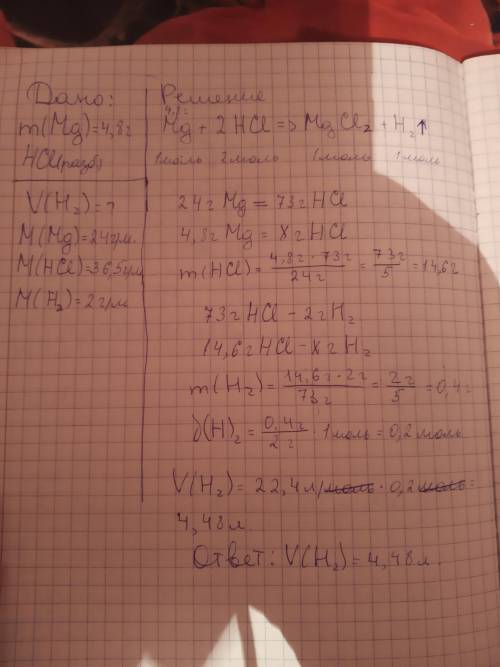 Дано:
m(Mg)=4,8г
HCl(разб)
V(H₂)=?
M(Mg)=24г/м.
M(HCl)=36,5г/м
M(H₂)=2г/м
Решение
Mg + 2 HCl => MgCl₂ + H₂↑
1моль 2моль 1моль 1моль
24г Mg = 73г HCl
4,8г Mg = Xг HCl
m(HCl) = 4,8г · 73г / 24г = 73г / 5 = 14,6г
73г HCl – 2г H₂
14,6г HCl – Xг H₂
m(H₂) = 14,6г · 2г / 73г = 2г / 5 = 0,4г
(H)₂ = 0,4г / 2г · 1моль = 0,2моль
V(H₂) = 22,4 л/моль · 0,2 моль =
4,48л
Ответ: V(H₂) = 4,48л.